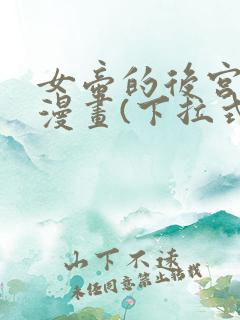 女帝的後宮
漫畫(下拉式
山下不遠
未經同意禁止轉載